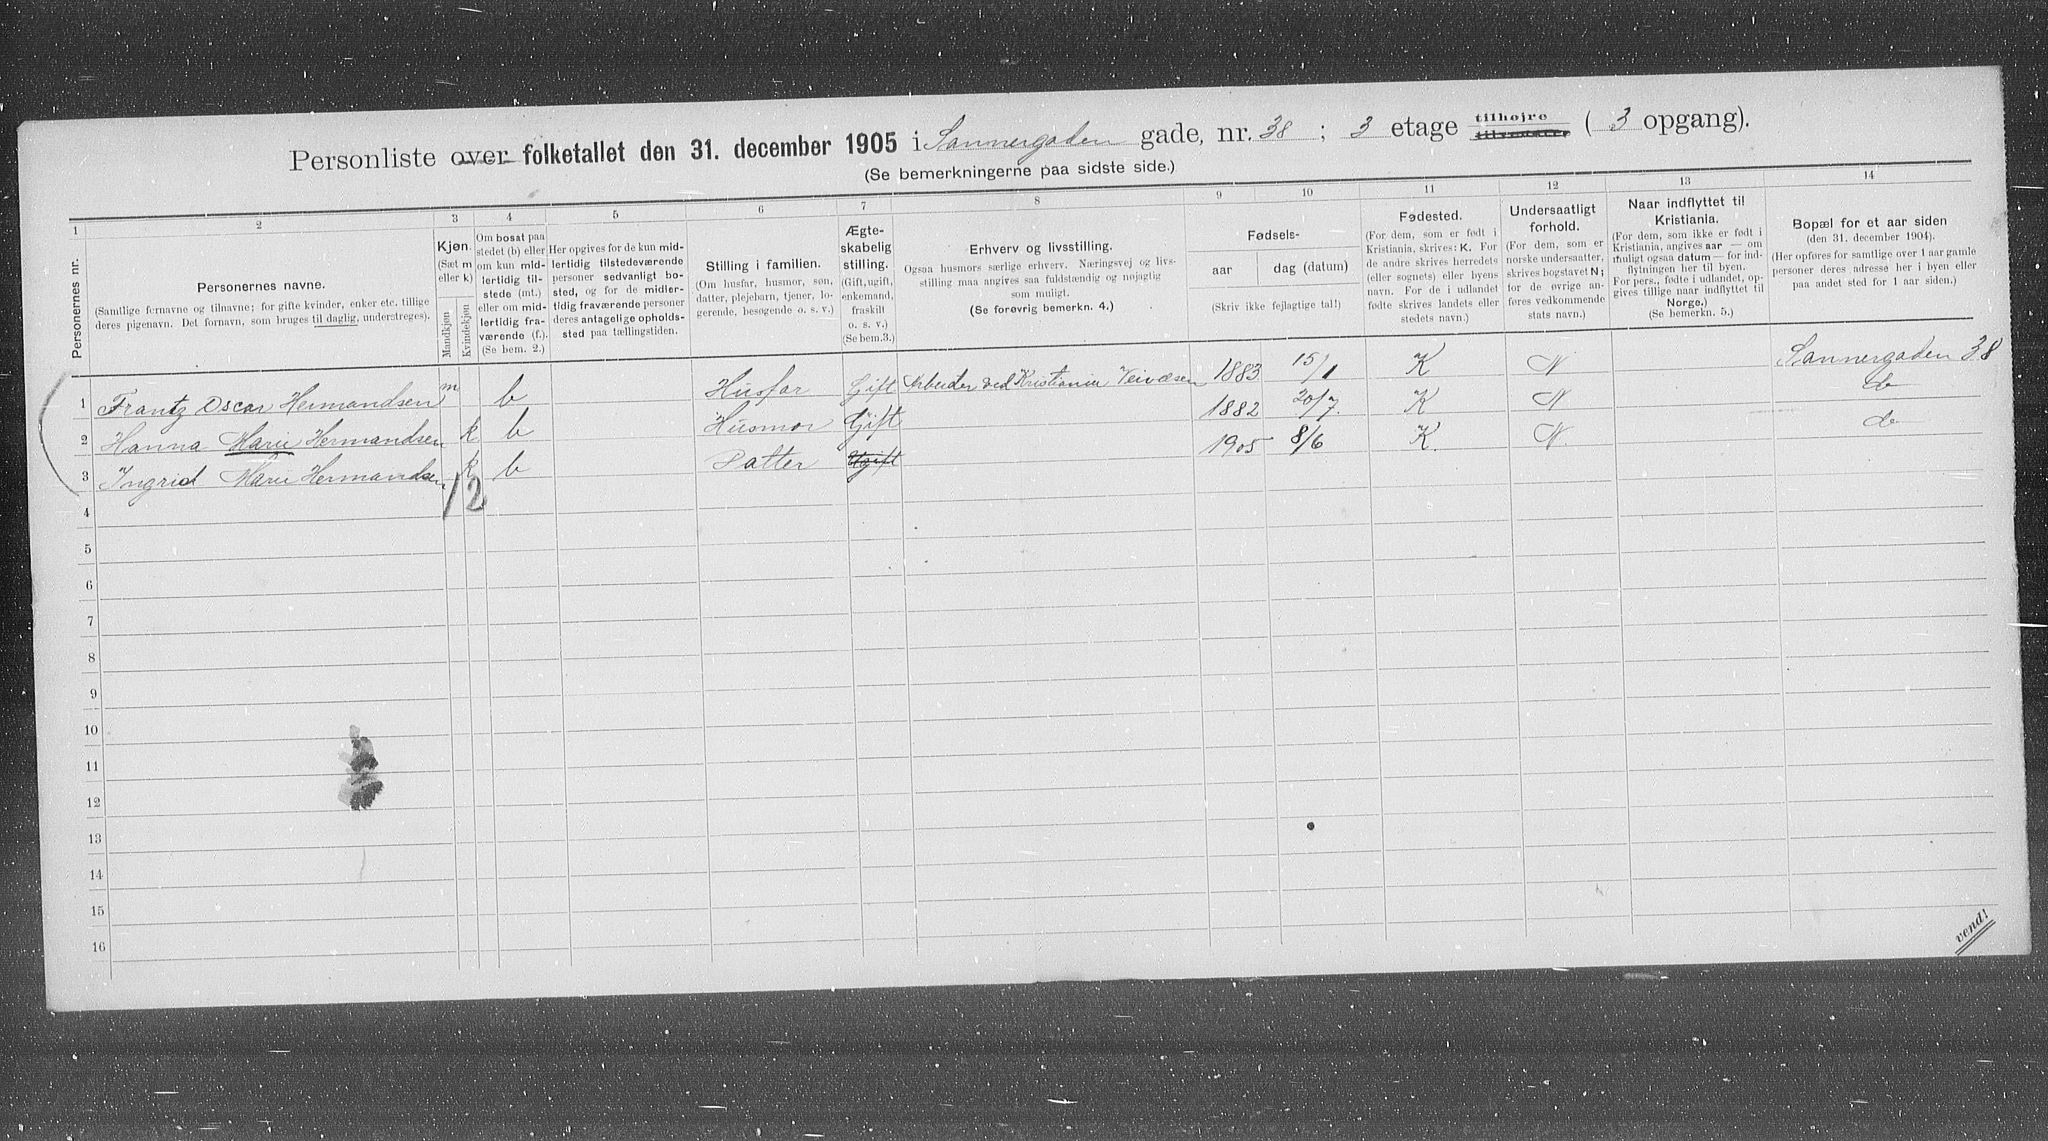 Personliste over folketallet den 31. december 1905 i Sannergaden gade, nr. 38 ; 3 etage tilhøjre tilvenstre ( 3 opgang).
(Se bemerkningerne paa sidste side.)
1 2 3 4 5 6 7 8 9 10 11 12 13 14
Personernes nr.
Personernes navne.
(Samtlige fornavne og tilnavne; for gifte kvinder, enker etc. tillige
deres pigenavn. Det fornavn, som bruges til daglig, understreges).
Kjøn.
(Sæt m
eller k)
Mandkjøn
Kvindekjøn
Om bosat paa
stedet (b) eller
om kun mid-
lertidig til-
stede (mt.)
eller om mid-
lertidig fra-
værende (f.).
(Se bem. 2.)
Her opgives for de kun mid-
lertidig tilstedeværende
personer sedvanligt bo-
sted, og for de midler-
tidig fraværende personer
deres antagelige opholds-
sted paa tællingstiden.
Stilling i familien.
(Om husfar, husmor, søn,
datter, plejebarn, tjener, lo-
gerende, besøgende o. s. v.)
Ægte-
skabelig
stilling.
(Gift, ugift,
enkemand,
fraskilt
o. s. v.)
(Se bem.3.)
Erhverv og livsstilling.
Ogsaa husmors særlige erhverv. Næringsvej og livs-
stilling maa angives saa fuldstændig og nøjagtig
som muligt.
(Se forøvrig bemerkn. 4.)
Fødsels-
aar dag (datum)
(Skriv ikke fejlagtige tal!)
Fødested.
(For dem, som er født i
Kristiania, skrives: K. For
de andre skrives herredets
(eller sognets) eller byens
navn. For de i udlandet
fødte skrives landets eller
stedets navn.)
Undersaatligt
forhold.
(For dem, som er
norske undersaatter,
skrives bogstavet N;
for de øvrige an-
føres vedkommende
stats navn.)
Naar indflyttet til
Kristiania.
(For dem, som ikke er født i
Kristiania, angives aar — om
muligt ogsaa datum — for ind-
flytningen her til byen.
For pers., fødte i udlandet, op-
gives tillige naar indflyttet til
Norge.)
(Se bemerkn. 5.)
Bopæl for et aar siden
(den 31. december 1904).
(Her opføres for samtlige over 1 aar gamle
personer deres adresse her i byen eller
paa andet sted for 1 aar siden.)
1 Frantz Oscar Hermandsen m b Husfar Gift Arbeider ved Kristiania Veivæsen 1883 15/1 K N Sannergaden 38
2 Hanna Marie Hermandsen k b Husmor Gift 1882 20/7. K N do
3 Ingrid Marie Hermandsen k b Datter Ugift 1905 8/6 K. N do
1 2
4
5
6
7
8
9
10
11
12
13
14
15
16
vend!